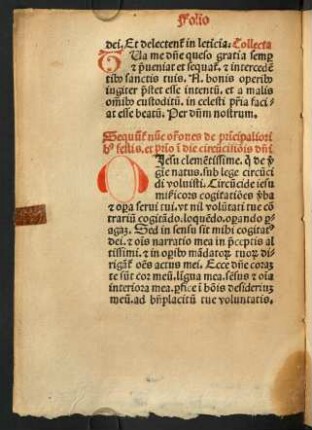 Folio
dei. Et delectent̃ in leticia. Collecta
TUa me dñe queso gratia semꝑ
⁊ p̃ueniat et sequat̃. ⁊ intercedẽ
tibꝰ sanctis tuis. A bonis operibꝰ
iugiter p̃stet esse intentũ. et a malis
om̃ibꝰ custoditũ. in celesti p̃ria faci
at esse beatũ. Per dñm nostrum.
Sequũt̃ nũc or̃ones de pricipaliori
bꝰ festis. et p̃rio ĩ die circũcisiõis dñi
O Jesu clemẽtissime. q̃ de ṽ
gĩe natus. sub lege circũci
di voluisti. Circũcide iesu
miṡicors cogitatiões ṽba
⁊ oꝑa serui tui. vt nil volũtati tue cõ
trariũ cogitãdo. loquẽdo. oꝑando ꝑ
agaꝫ. Sed in sensu sit mihi cogitatꝰ
dei. ⁊ oĩs narratio mea in p̃ceptis al
tissimi. ⁊ in opibꝰ mãdatoꝝ tuoꝝ di
rigãt̃ oẽs actus mei. Ecce dñe coraꝫ
te sũt cor meũ. ligua mea. sẽsus ⁊ oĩa
interiora mea. ꝑfice ĩ bõis desideriuꝫ
meũ. ad bñplacitũ tue voluntatis.